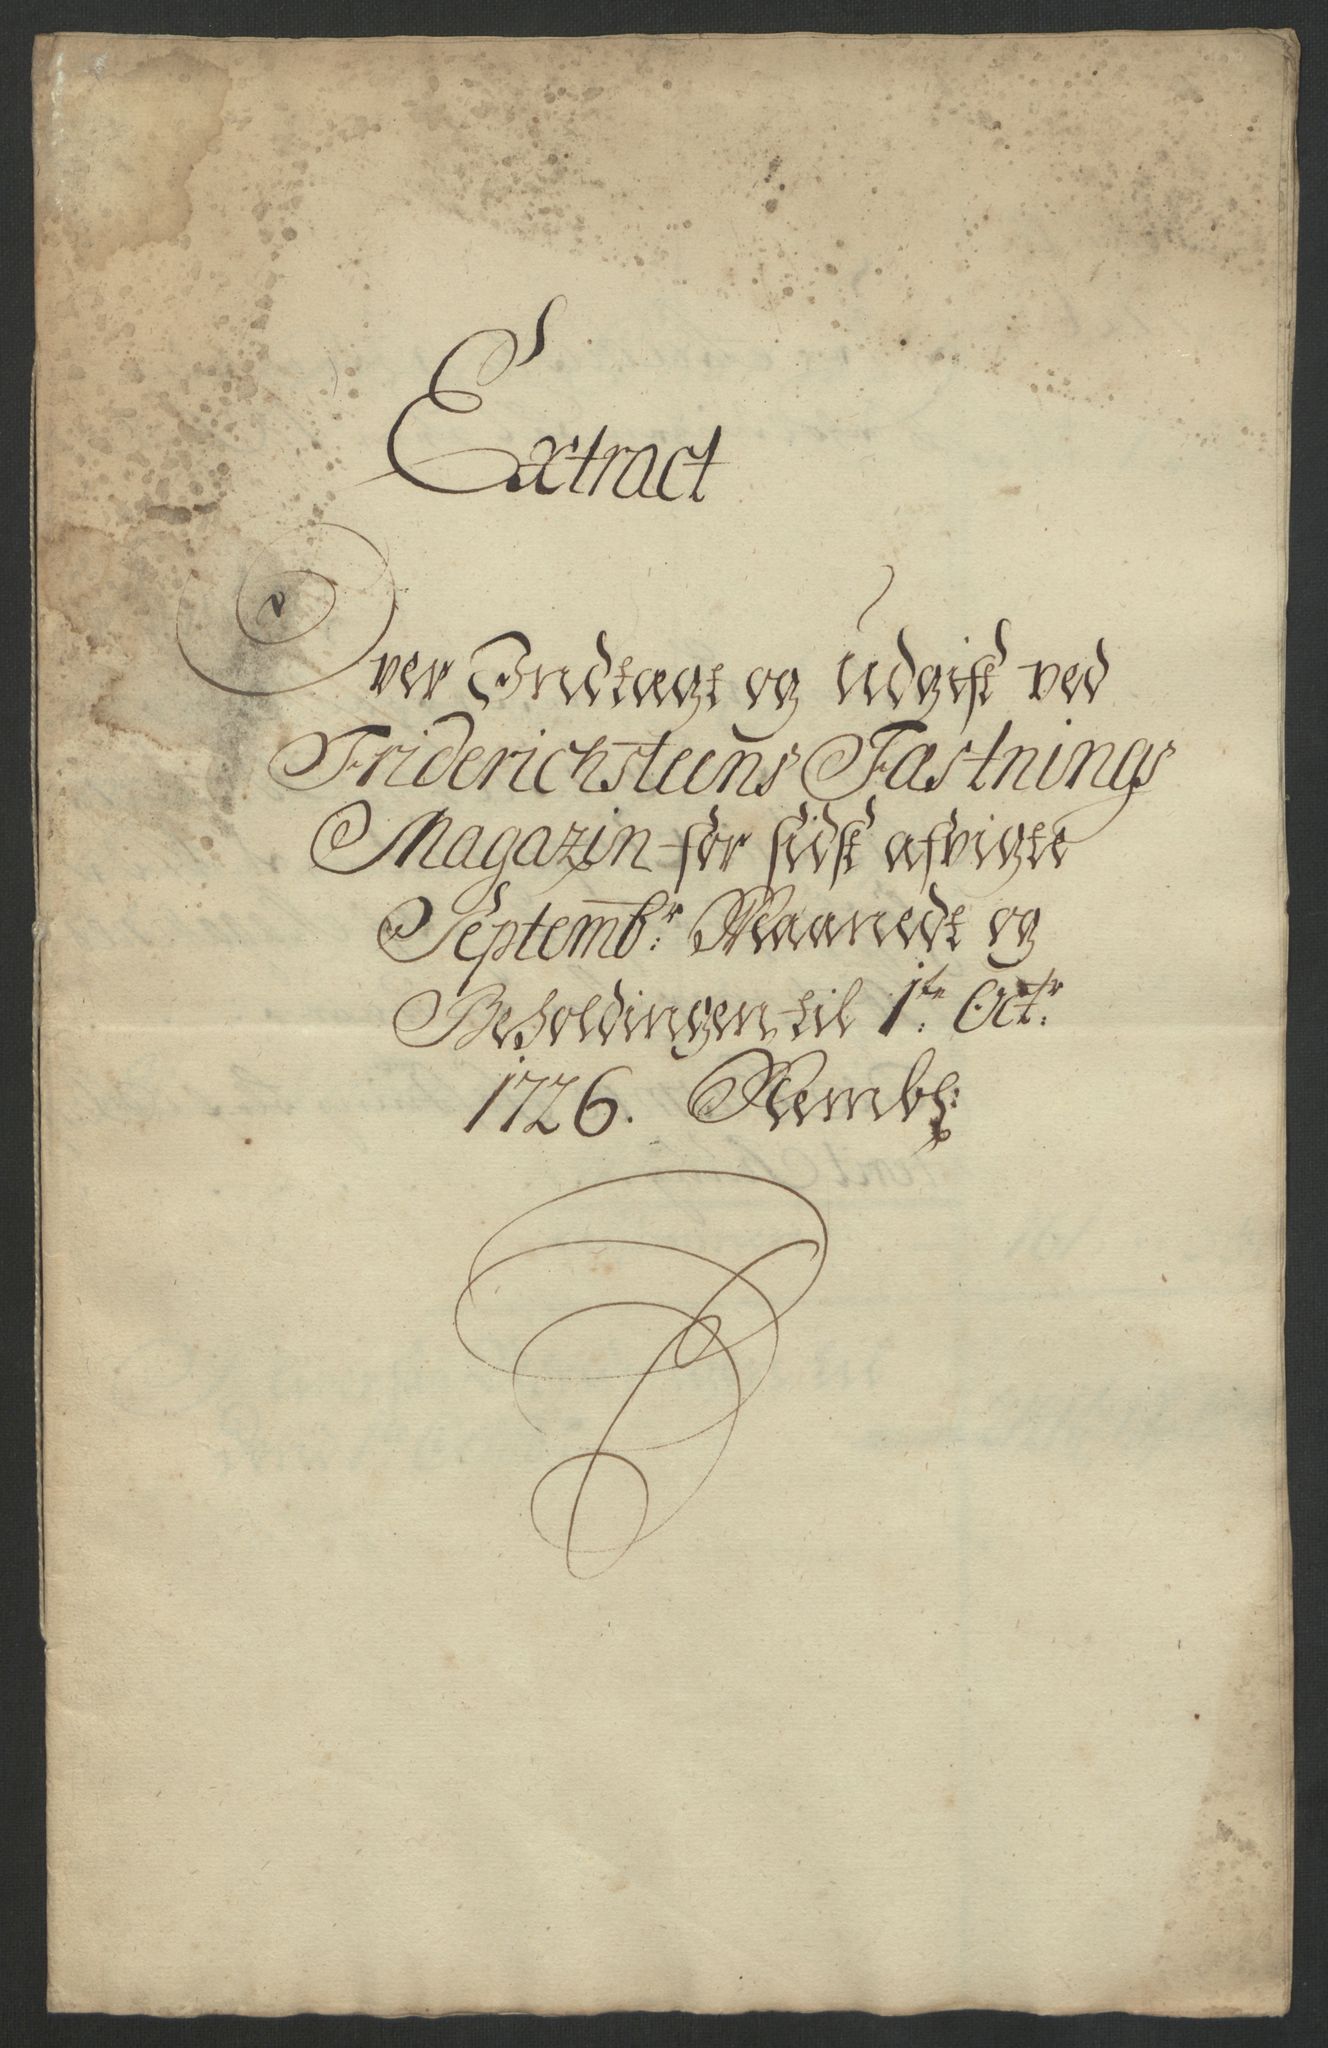 Extract
Over Indtægt og Udgift ved
Friderichsteens Fæstnings
Magazin for sidst afvigte
Septembr: Maanedt og
Beholdingen til 1te Octr:
1726. Nembl: